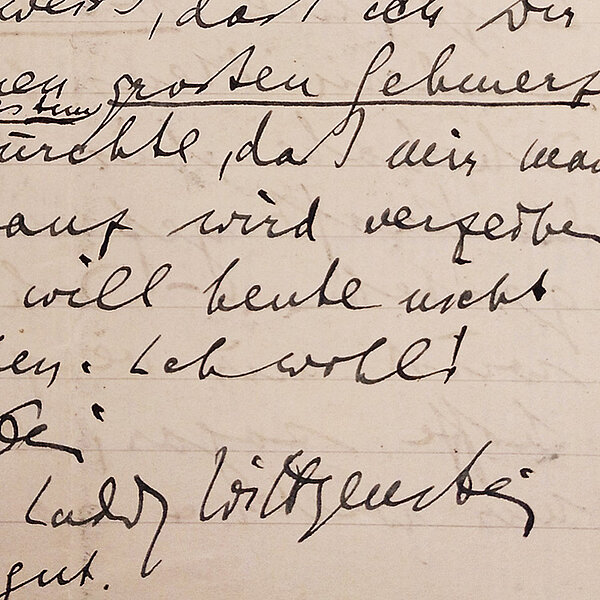 , daß ich Dir
nen großen Schmerz
fürchte, daß mir man
auf wird verzeihen
will heute nicht
en. Leb wohl!
Dein
Ludwig Wittgenstein
gut.